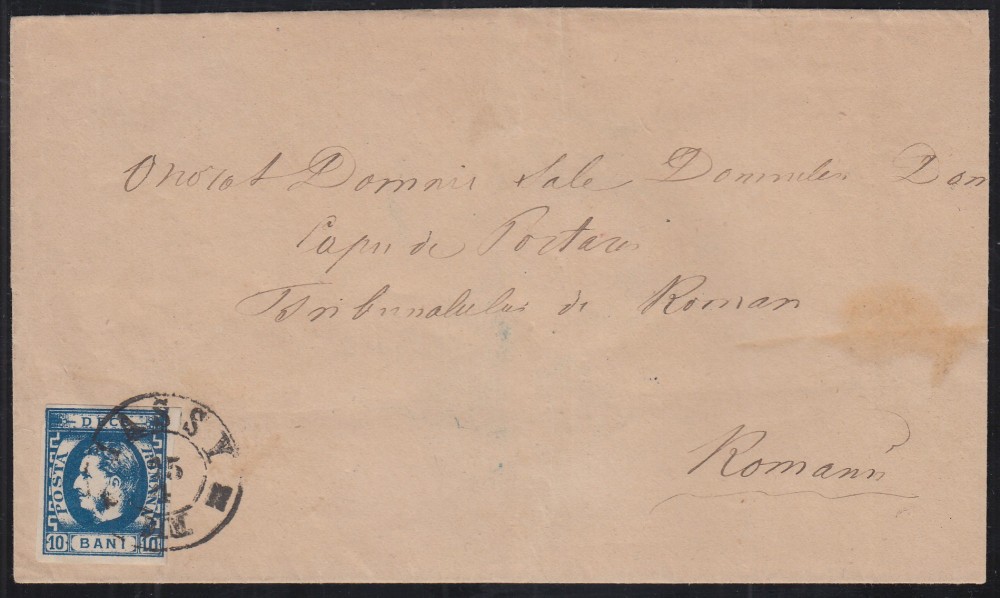 Domnii Sale Domnului Dan
Capu de Portari
Tribunalului de Roman
Romanu
DECE
POSTA ROMANA
10 BANI 10
IASSY